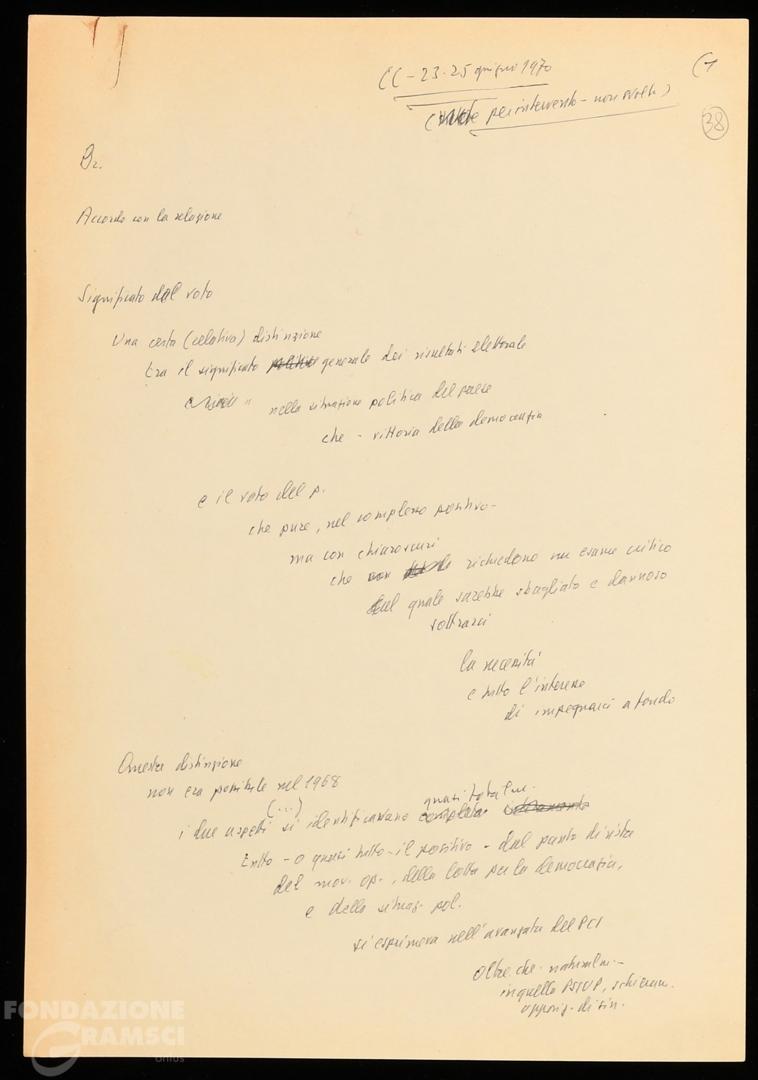 CC - 23-25 giugno 1970
(1
(Note per intervento - non svolto)
38
Br.
Accordo con la relazione
Significato del voto
Una certa (relativa) distinzione
tra il significato politico generale dei risultati elettorale
nella situazione politica del paese
che - vittoria della democrazia
e il voto del p.
che pure, nel complesso positivo -
ma con chiaroscuri
che non richiedono un esame critico
al quale sarebbe sbagliato e dannoso
sottrarci
la necessità
e tutto l'interesse
di impegnarci a fondo
Questa distinzione
non era possibile nel 1968
(...) quasi totalm.
i due aspetti si identificavano completa-
Tutto - o quasi tutto - il positivo - dal punto di vista
del mov. op., della lotta per la democrazia,
e della situaz. pol.
si esprimeva nell'avanzata del PCI
oltre che - naturalm. -
in quella PSIUP, schieram.
opposiz. di sin.
FONDAZIONE
GRAMSCI
onlus